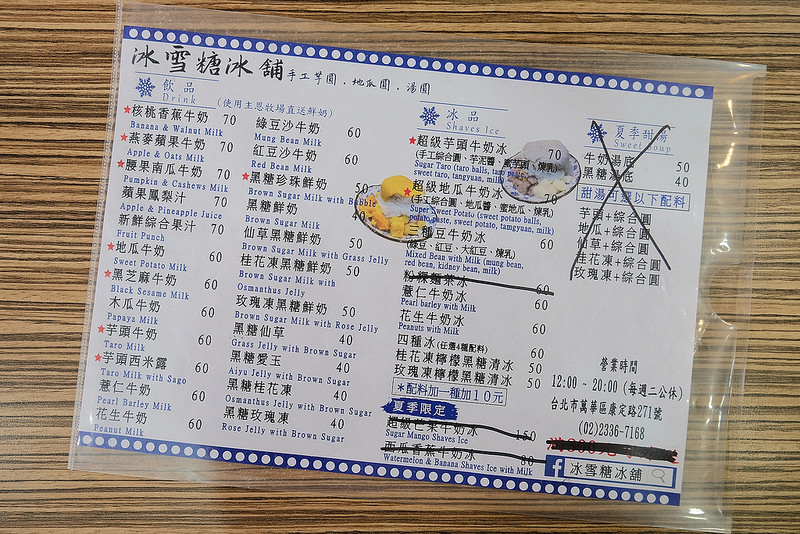 冰雪糖冰舖 手工芋圓．地瓜圓．湯圓
飲品
Drink
(使用主恩牧場直送鮮奶)
核桃香蕉牛奶 70
Banana & Walnut Milk
燕麥蘋果牛奶 70
Apple & Oats Milk
腰果南瓜牛奶 70
Pumpkin & Cashews Milk
蘋果鳳梨汁 70
Apple & Pineapple Juice
新鮮綜合果汁 70
Fruit Punch
地瓜牛奶 60
Sweet Potato Milk
黑芝麻牛奶 60
Black Sesame Milk
木瓜牛奶 60
Papaya Milk
芋頭牛奶 60
Taro Milk
芋頭西米露 60
Taro Milk with Sago
薏仁牛奶 60
Pearl Barley Milk
花生牛奶 60
Peanut Milk
綠豆沙牛奶 60
Mung Bean Milk
紅豆沙牛奶 60
Red Bean Milk
黑糖珍珠鮮奶 50
Brown Sugar Milk with Bubble
黑糖鮮奶 40
Brown Sugar Milk
仙草黑糖鮮奶 50
Brown Sugar Milk with Grass Jelly
桂花凍黑糖鮮奶 50
Brown Sugar Milk with
Osmanthus Jelly
玫瑰凍黑糖鮮奶 50
Brown Sugar Milk with Rose Jelly
黑糖仙草 40
Grass Jelly with Brown Sugar
黑糖愛玉 40
Aiyu Jelly with Brown Sugar
黑糖桂花凍 40
Osmanthus Jelly with Brown Sugar
黑糖玫瑰凍 40
Rose Jelly with Brown Sugar
冰品
Shaves Ice
超級芋頭牛奶冰 70
(手工綜合圓、芋泥醬、蜜芋頭、煉乳)
Sugar Taro (taro balls, taro paste,
sweet taro, tangyuan, milk)
超級地瓜牛奶冰 70
(手工綜合圓、地瓜醬、蜜地瓜、煉乳)
Super Sweet Potato (sweet potato balls,
potato paste, sweet potato, tamgyuan, milk)
三種豆牛奶冰 60
(綠豆、紅豆、大紅豆、煉乳)
Mixed Bean with Milk (mung bean,
red bean, kidney bean, milk)
粉粿麵茶冰 60
薏仁牛奶冰 60
Pearl barley with Milk
花生牛奶冰 60
Peanuts with Milk
四種冰(任選4種配料) 60
桂花凍檸檬黑糖清冰 50
玫瑰凍檸檬黑糖清冰 50
＊配料加一種加10元
夏季限定
超級芒果牛奶冰 150
Sugar Mango Shaves Ice
西瓜香蕉牛奶冰 80
Watermelon & Banana Shaves Ice with Milk
夏季甜湯
Sweet Soup
牛奶湯底 50
黑糖湯底 40
甜湯可選以下配料
芋頭+綜合圓
地瓜+綜合圓
仙草+綜合圓
桂花凍+綜合圓
玫瑰凍+綜合圓
營業時間
12:00 ~ 20:00 (每週二公休)
台北市萬華區康定路271號
(02)2336-7168
冰雪糖冰舖